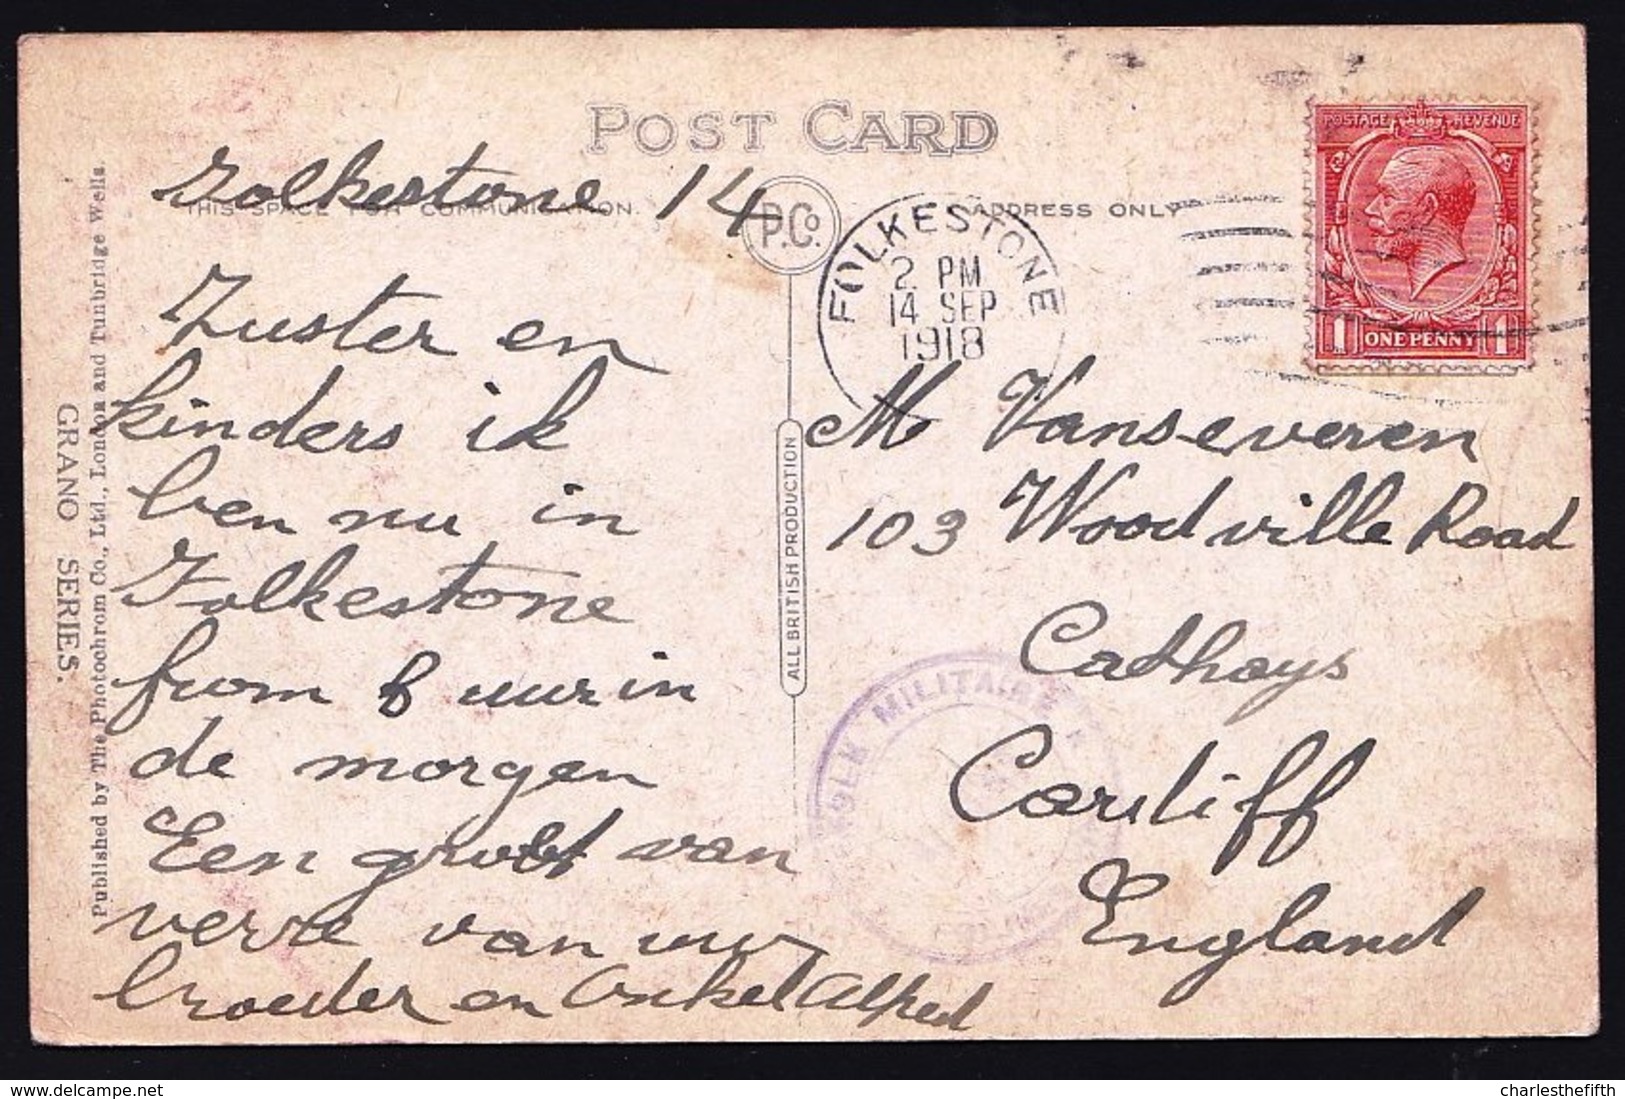 POST CARD
THIS SPACE FOR COMMUNICATION
ADDRESS ONLY
P.Co.
Folkestone 14
Zuster en
kinders ik
ben nu in
Folkestone
from 6 uur in
de morgen
Een groet van
verre van uw
broeder en Onkel Alfred
FOLKESTONE
2 PM
14 SEP
1918
POSTAGE REVENUE
1 ONE PENNY 1
M Vanseveren
103 Woodville Road
Cathays
Cardiff
England
MILITAIRE
ALL BRITISH PRODUCTION
Published by The Photochrom Co., Ltd., London and Tunbridge Wells.
GRANO SERIES.
charlesthefifth
© delcampe.net